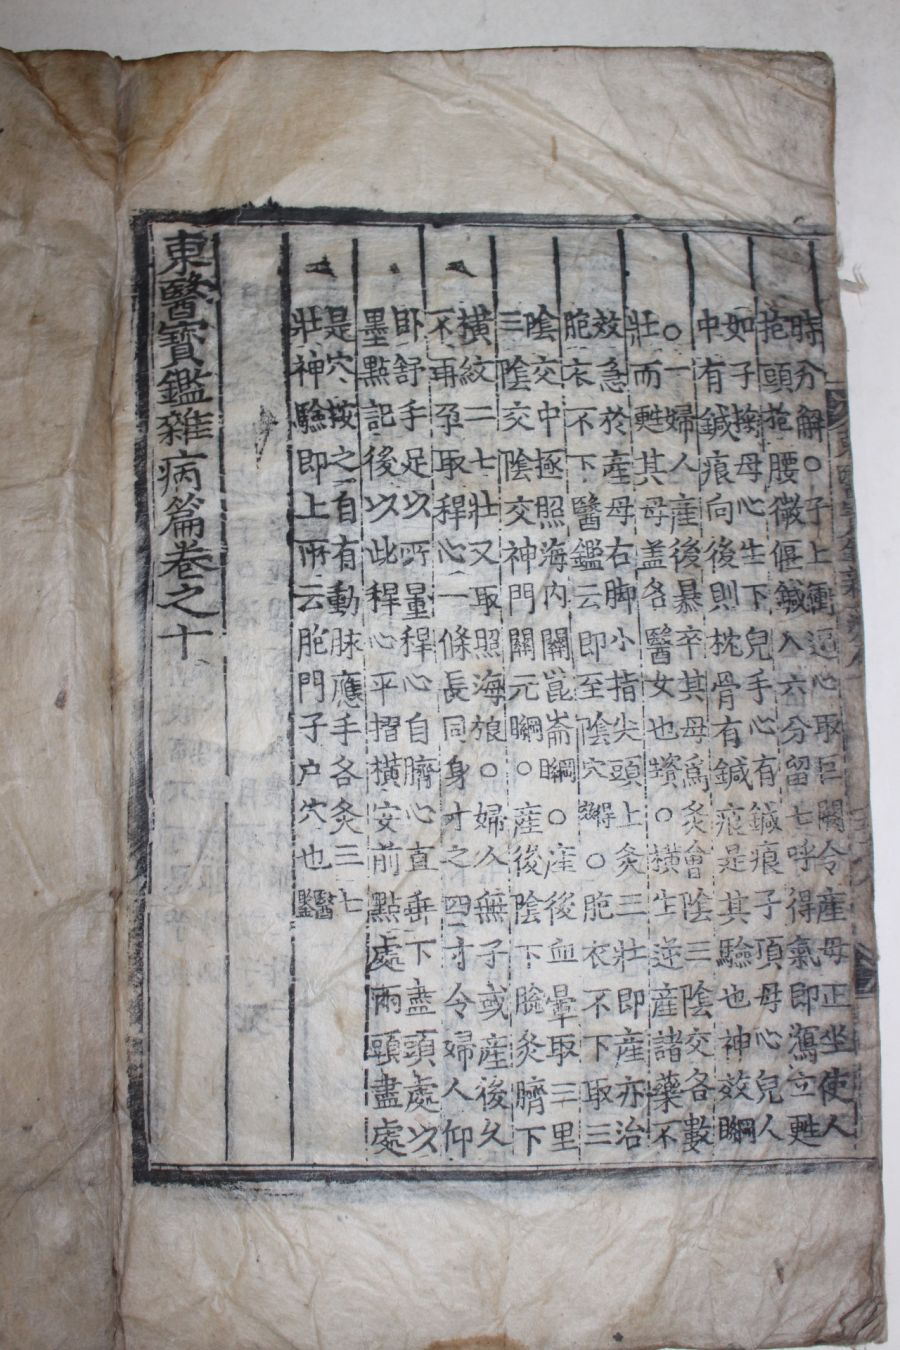 時分解○子上衝逼心取巨闕令産母正坐使人
抱頭抱腰微偃鍼入六分留七呼得氣即瀉立甦
如子掬母心生下兒手心有鍼痕子頂母心兒人
中有鍼痕向後則枕骨有鍼痕是其驗也神效綱目
○一婦人産後暴卒其母爲灸會陰三陰交各數
壯而甦其母盖各醫女也資○橫生逆産諸藥不
效急於産母右脚小指尖頭上灸三壯即産亦治
胞衣不下醫鑑云即至陰穴得效○胞衣不下取三
陰交中極照海內關崑崙綱目○産後血暈取三里
三陰交陰交神門關元綱目○産後陰下脫灸臍下
橫紋二七壯又取照海良方○婦人無子或産後久
不再孕取稈心一條長同身寸之四寸令婦人仰
卧舒手足以所量稈心自臍心直垂下盡頭處以
墨點記後以此稈心平摺橫安前點處兩頭盡處
是穴按之自有動脉應手各灸三七
壯神驗即上所云胞門子户穴也醫鑑
東醫寶鑑雜病篇卷之十